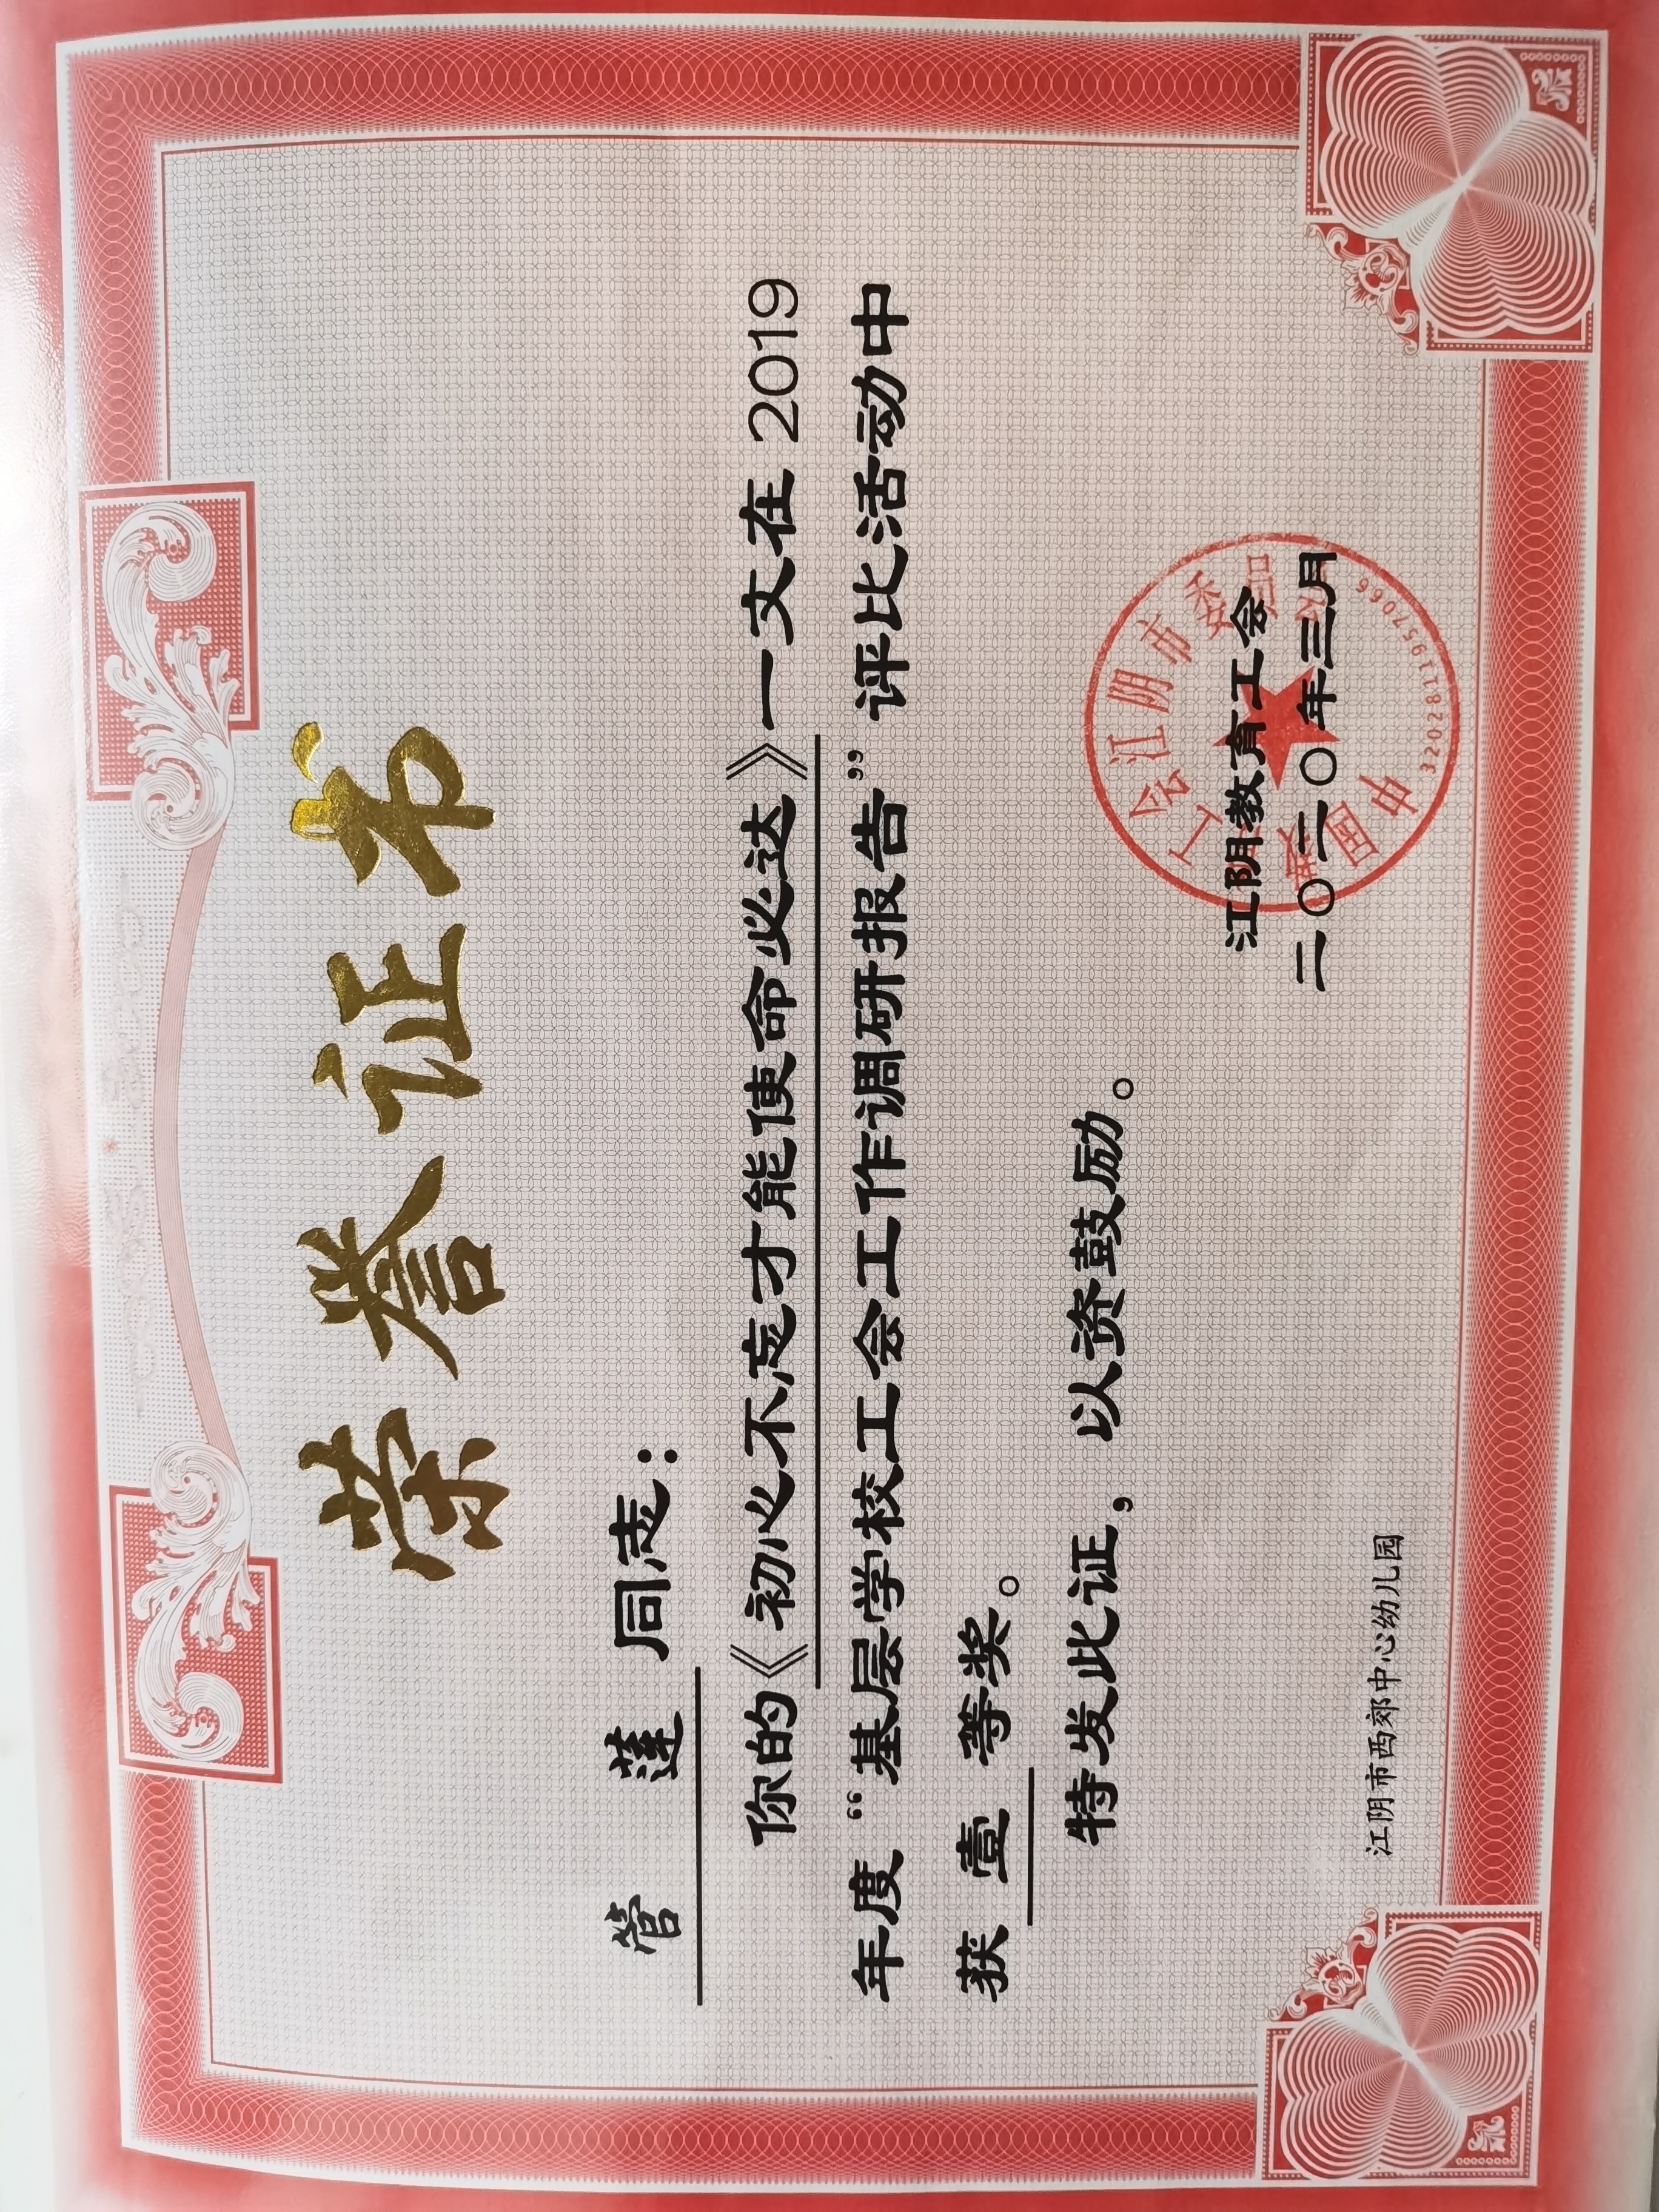 荣誉证书
管 莲 同志：
你的《初心不忘才能使命必达》一文在 2019
年度“基层学校工会工作调研报告”评比活动中
获 壹 等奖。
特发此证，以资鼓励。
江阴教育工会
二〇二〇年三月
江阴市西郊中心幼儿园
工会江阴市委
中国教
3202811957066